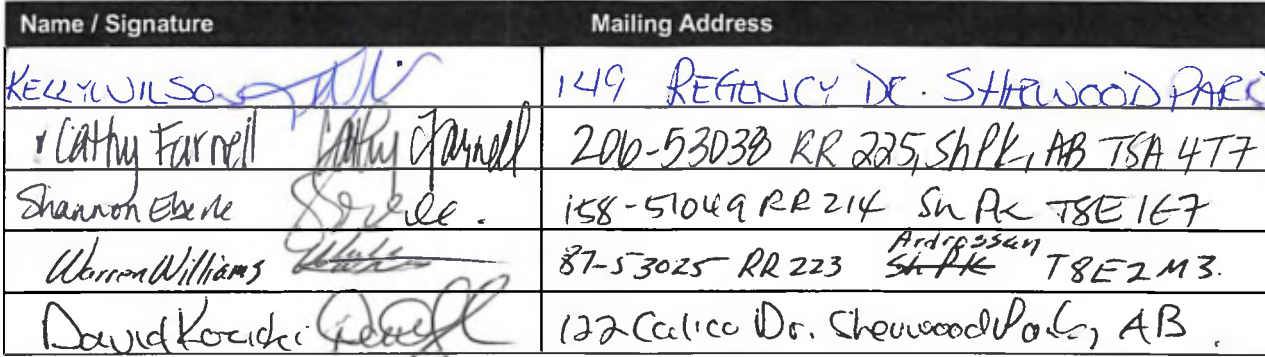 Name / Signature Mailing Address
KELLY WILSON 149 REGENCY DR. SHERWOOD PARK
Cathy Farnell Cathy Farnell 206-53038 RR 225, ShPk, AB T8A 4T7
Shannon Eberle 158-51049 RR 214 Sh Pk T8E 1G7
Warren Williams 87-53025 RR 223 Sh Pk Ardrossan T8E 2M3.
David 122 Calico Dr. Sherwood Park, AB.